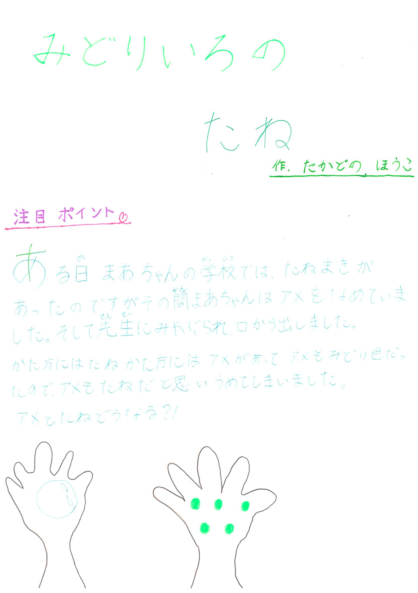 みどりいろの
たね
作.たかどの ほうこ
注目 ポイント
ある日 まあちゃんの学校では、たねまきが
あったのですがその間まあちゃんはアメをなめていま
した。そして先生にみやぶられ口から出しました。
かた方にはたねかた方にはアメがあって アメもみどり色だっ
たので、アメもたねだと思いうめてしまいました。
アメとたねどうなる?!